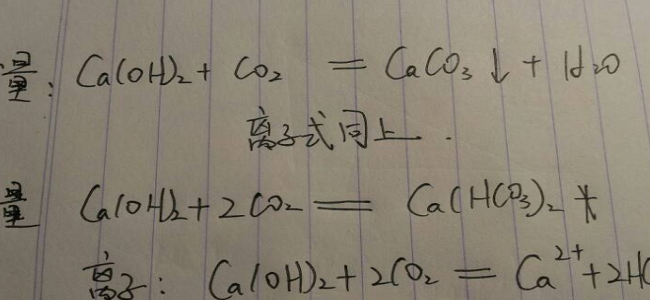 量: Ca(OH)₂ + CO₂ = CaCO₃↓ + H₂O
离子式同上.
量 Ca(OH)₂ + 2CO₂ = Ca(HCO₃)₂
离子: Ca(OH)₂ + 2CO₂ = Ca²⁺ + 2HC